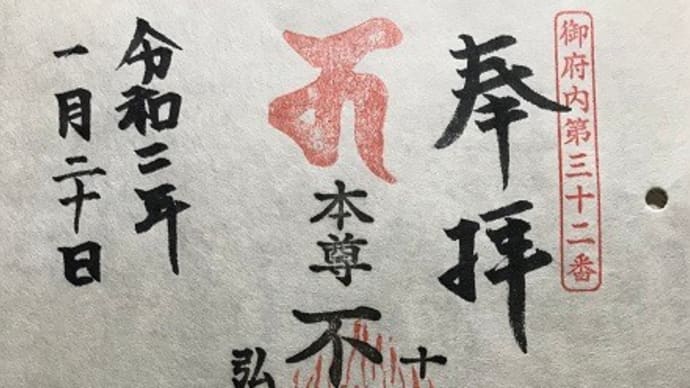 御府内第三十二番
奉拝
十
本尊 不
弘
令和二年
一月二十日